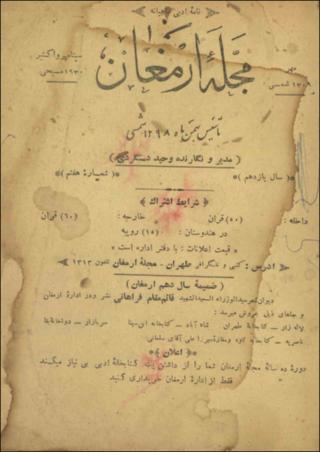 نامهٔ ادبی ماهیانه
مجلهٔ ارمغان
مهر
۱۳۰۹ شمسی
سپتامبر و اکتبر
۱۹۳۰ مسیحی
تأسیس بهمن ماه ۱۲۹۸ شمسی
( مدیر و نگارنده وحید دستگردی )
*( سال یازدهم )* *( شمارهٔ هفتم )*
شرایط اشتراك
داخله : (۵۰) قران خارجه : (۶۰) قران
در هندوستان : (۱۵) روپیه
« قیمت اعلانات : با دفتر اداره است »
آدرس : کتبی و تلگرافی طهران - مجلهٔ ارمغان تلفون ۱۳۱۳
( ضمیمهٔ سال دهم ارمغان )
قائم‌مقام فراهانی نشر و در ادارهٔ ارمغان
و جاهای ذیل بفروش میرسد :
لاله زار - کتابخانهٔ طهران شاه آباد - کتابخانه ابن‌سینا
ناصریه - کتابخانه کاوه آقای سلمانی
*( اعلان )*
دورهٔ ده سالهٔ مجلهٔ ارمغان شما را از داشتن یك کتابخانهٔ ادبی بی نیاز میکند
فقط از ادارهٔ ارمغان خریداری کنید